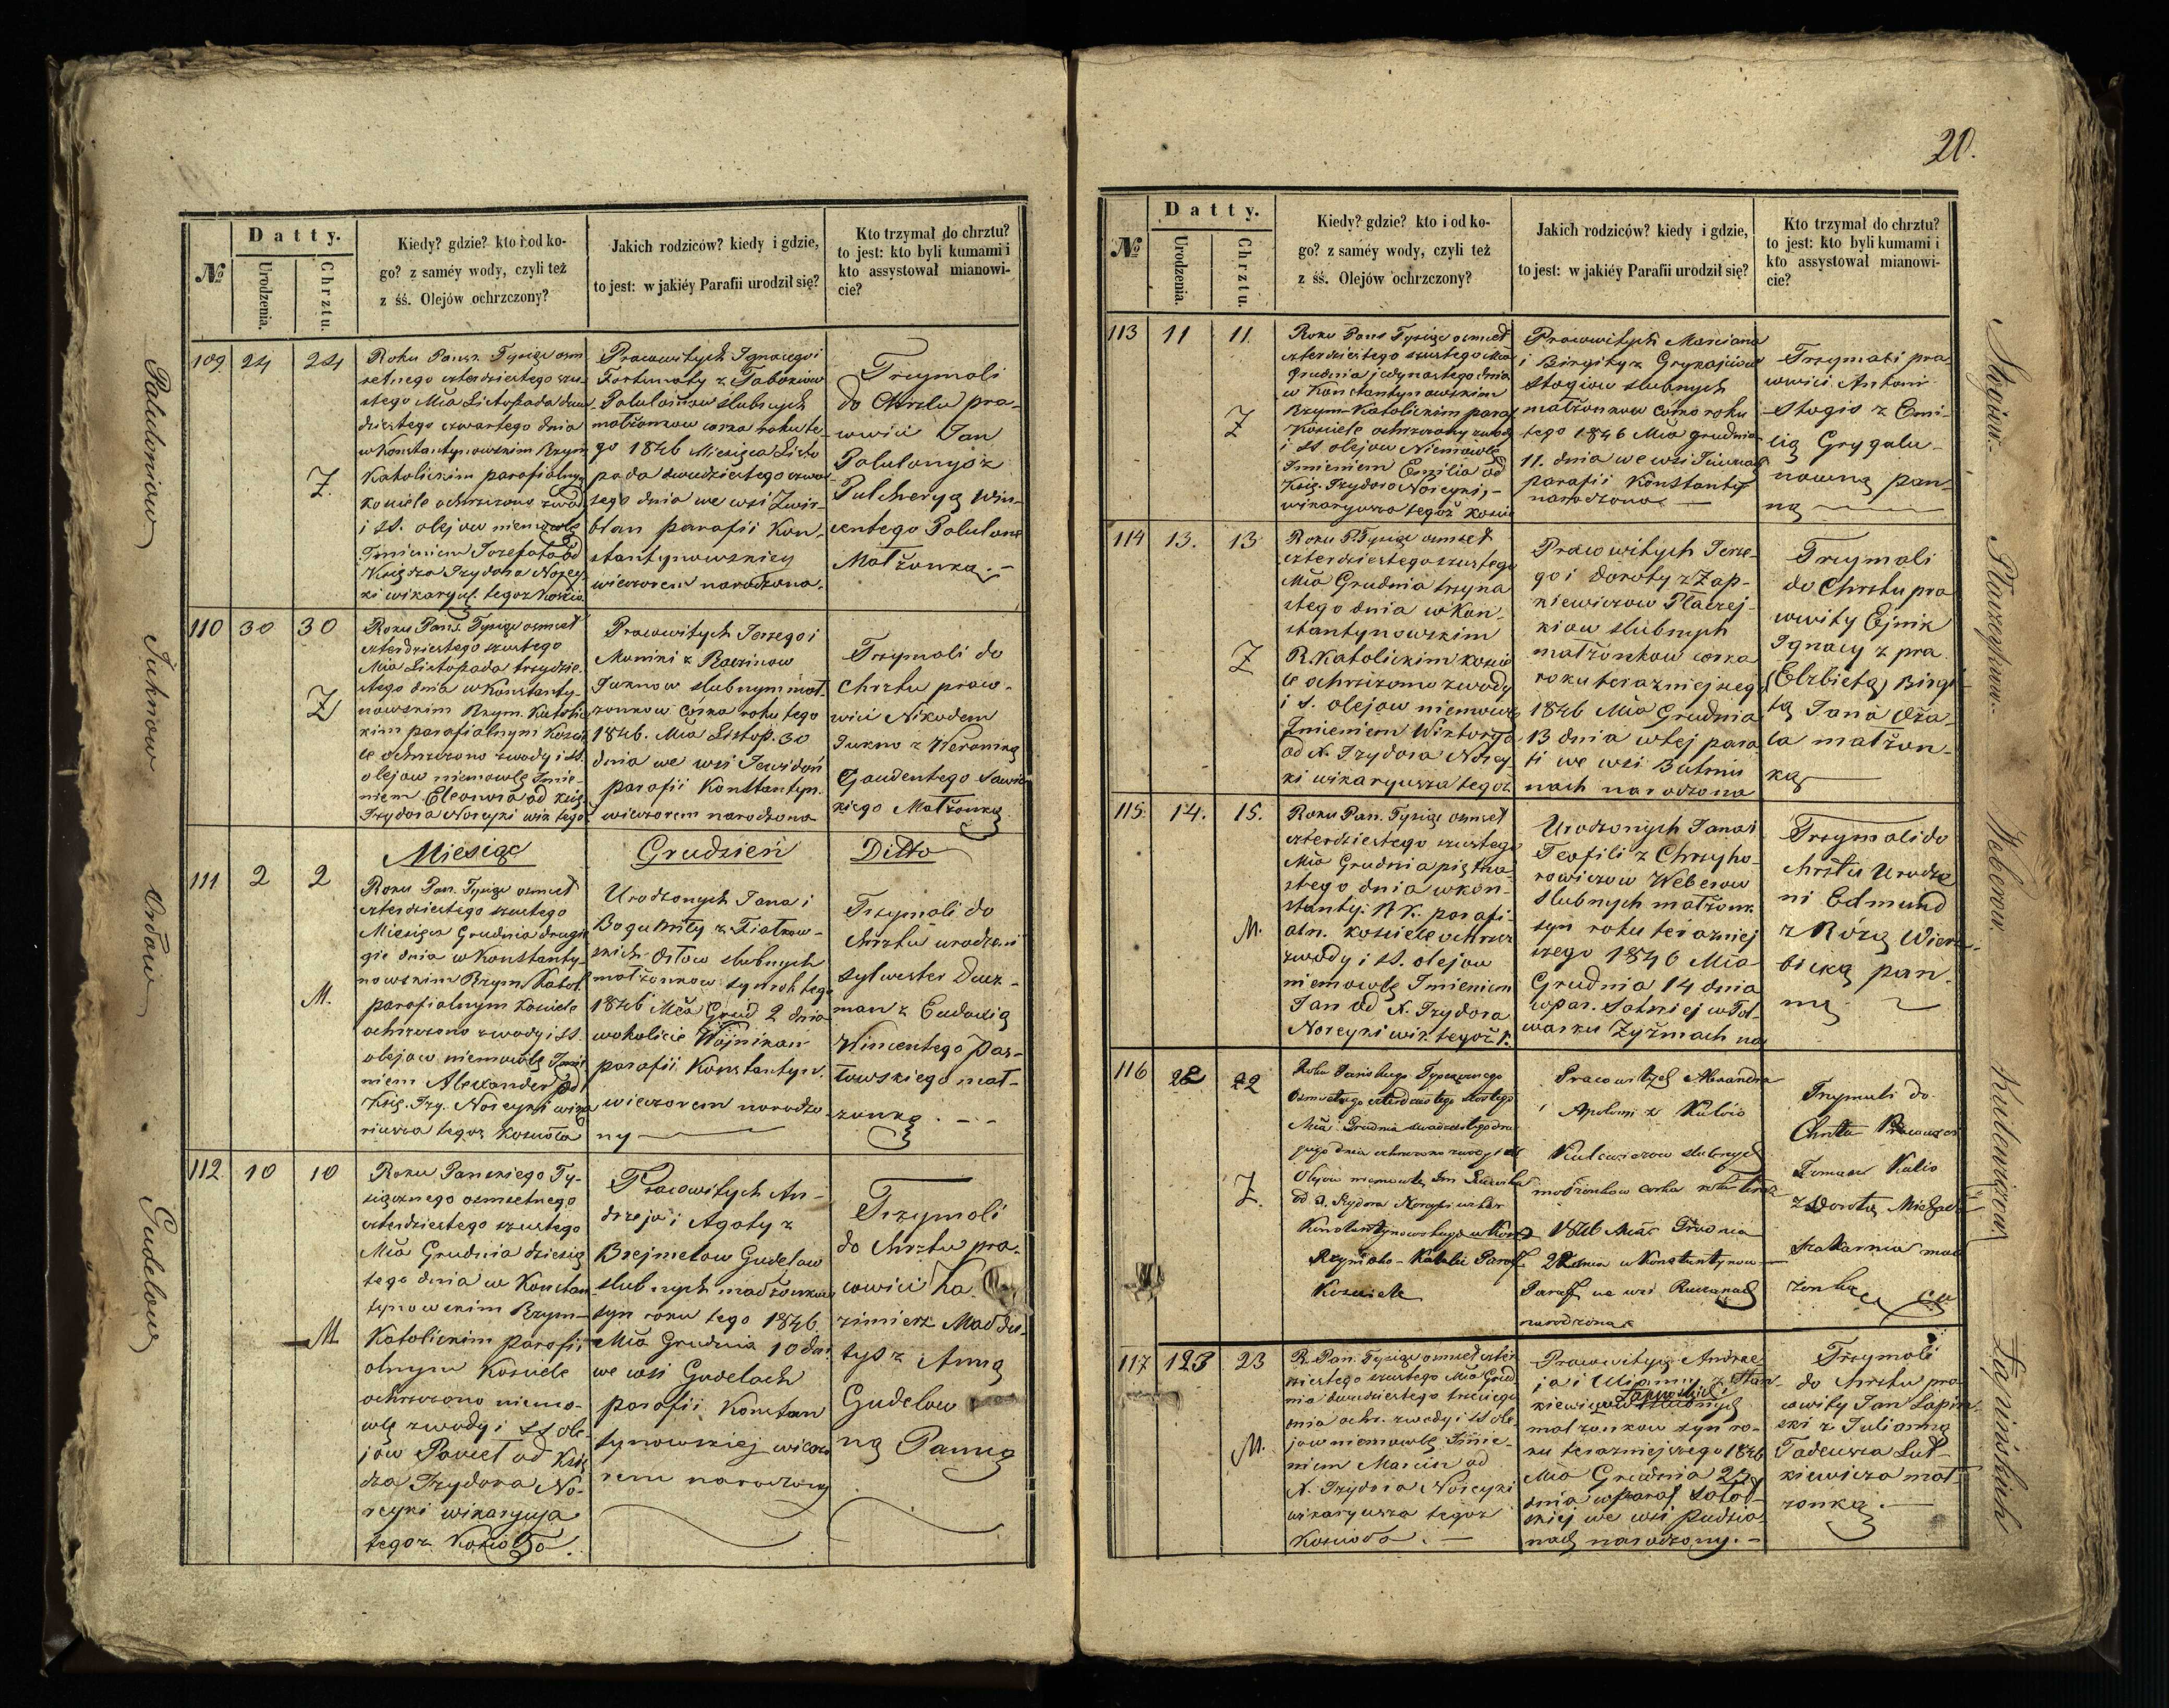 №
Datty.
Urodzenia.
Chrztu.
Kiedy? gdzie? kto i od ko-
go? z saméy wody, czyli też
z śś. Olejów ochrzczony?
Jakich rodziców? kiedy i gdzie,
to jest: w jakiéy Parafii urodził się?
Kto trzymał do chrztu?
to jest: kto byli kumami i
kto assystował mianowi-
cie?
109 24 24
Z.
Roku Pańs. Tysiąc osm
setnego czterdziestego szu-
stego Mca Listopada dwu-
dziestego czwartego dnia
w Konstantynowskim Rzym
Katolickim parafialnym
kościele ochrzczono zwody
i SS. olejow niemowle
Imieniem Jozefata od
Księdza Izydora Norey-
ki wikaryusz. tegoz Koscio.
Pracowitych Ignacego i
Fortunaty z
Palulonisow slubnych
małżonkow corka roku te-
go 1846 Miesiąca Listo
pada dwudziestego czwar
tego dnia we wsi Zwir-
blan parafii Kon-
stantynowskiey
wieczorem narodzona.
Trzymali
do Chrztu pra-
cowici Jan
Palulonys z
Pulcheryą Win-
centego Palulona
Małżonką. -
Paluluniow
110 30 30
Z
Roku Pańs. Tysiąc osmset
czterdziestego szustego
Mca Listopada trzydzie-
stego dnia w Konstanty-
nowskim Rzym. Katolic
kim parafialnym Koscie
le ochrzczono zwody i SS.
olejow niemowle Imie-
niem Eleonora od księ
Izydora Noreyki wik tego
Pracowitych Jerzego i
Moniki z Raczinow
Juknow slubnym mał-
zonkow corka roku tego
1846. Mca Listop. 30
dnia we wsi Jewidań
parafii Konstantyn.
wieczorem narodzona
Trzymali do
Chrztu praco-
wici Nikodem
Jukno z Weroniką
Gaudentego Sawic
kiego Małżonką
Juknow
Miesiąc Grudzień Ditto
111 2 2
M.
Roku Pan. Tysiąc osmset
czterdziestego szustego
Miesiąca Grudnia drugie
go dnia w Konstanty-
nowskim Rzym Katol.
parafialnym Kosciele
ochrzczono zwody i SS.
olejow niemowle Imie
niem Alexander od
Księ. Izy. Noreyki wika
riusza tegoz Kosciola
Urodzonych Jana i
Bogumiły z Fiatkow-
skich Ordow slubnych
małżonkow syn rok tego
1846 Mca Grud 2 dnia
w okolicie Wojnikan
parafii Konstantyn.
wieczorem narodzo-
ny
Trzymali do
chrztu urodzeni
Sylwester Dusz-
man z Eudoxią
Wincentego Paw-
łowskiego mał-
zonką. - -
Ordow
112. 10 10
M
Roku Pańskiego Ty-
siącznego osmsetnego
czterdziestego szustego
Mca Grudnia dziesią
tego dnia w Konstan
tynowskim Rzym-
Katolickim parafi-
alnym Kosciele
ochrzczono niemo-
wle zwody i SS ole-
jow Paweł od Księ
dza Izydora No-
reyki wikaryuja
tegoz Kosciola.
Pracowitych An-
drzeja i Agaty z
Brejmelow Gudelow
slubnych małżonkow
syn roku tego 1846
Mca Grudnia 10 dnia
we wsi Gudelach
parafii Konstan
tynowskiej wieczo
rem narodzony
Trzymali
do chrztu pra-
cowici Ka-
zimierz Maddu-
tys z Anną
Gudelow
ną Panną
Gudelow
20.
№
Datty.
Urodzenia.
Chrztu.
Kiedy? gdzie? kto i od ko-
go? z saméy wody, czyli też
z śś. Olejów ochrzczony?
Jakich rodziców? kiedy i gdzie,
to jest: w jakiéy Parafii urodził się?
Kto trzymał do chrztu?
to jest: kto byli kumami i
kto assystował mianowi-
cie?
113 11 11.
Z
Roku Pans Tysiąc osmset
czterdziestego szustego Mca
Grudnia jedynastego dnia
w Konstantynowskim
Rzym-Katolickim paraf
kosciele ochrzczony zwody
i SS olejow Niemowle
Imieniem Emilia od
Księ. Izydora Noreyki, -
wikaryusza tegoż koscio
Pracowitych Marciana
i Birgity z Grykajciow
Stogiow slubnych
małżonkow corka roku
tego 1846 Mca grudnia
11. dnia we wsi
parafii Konstanty
narodzona
Trzymali pra-
cowici Antoni
Stogis z Emi-
lią Grygalu-
nowną pan-
ną
114 13. 13
Z
Roku P. Tysiąc osmset
czterdziestego szustego
Mca Grudnia trzyna
stego dnia w Kon-
stantynowskim
R. Katolickim koscie
le ochrzczono zwody
i S. olejow niemowle
Imieniem Wiktorya
od X. Izydora Norey
ki wikaryusza tegoż
Pracowitych Jerze-
go i Doroty z Zap-
kiewiczow Płaczej-
kiow slubnych
małżonkow corka
roku terazniejszego
1846 Mca Grudnia
13 dnia w tej para
fi we wsi Butniu
nach narodzona
Trzymali
do Chrztu pra
cowity Ejnik
Ignacy z pra
(Elzbietą) Birgi
tą Jana
la małżon-
ką
115. 14. 15.
M.
Roku Pan. Tysiąc osmset
czterdziestego szustego
Mca Grudnia piętna-
stego dnia w kon-
stanty. R K. parafi-
aln. kosciele ochrzcz
zwody i SS. olejow
niemowle Imieniem
Jan od X. Izydora
Noreyki wik tegoż k.
Urodzonych Jana i
Teofili z Chrzyho-
rowiczow Weberow
slubnych małżonk
syn roku terazniej
szego 1846 Mca
Grudnia 14 dnia
w par. Satniej w Fol-
warku Zyżmach na
Trzymali do
chrztu Urodze
ni Edmund
z Rożą Wierz-
bicką pan-
ną
116 22 22
Z.
Roku Pańskiego Tysiącznego
Osmsetnego czterdziestego szostego
Mca Grudnia dwudziestego dru
giego dnia ochrzczono zwody i SS
Olejow niemowle Im
od X. Izydora Noreyki wikar
Konstantynowskiego w Konst
Rzymsko-Katolic Paraf.
Kosciele
Pracowitych Alexandra
i Apolonii z Kulwio
Kulewiczow slubnych
małżonkow corka roku teraz
1846 Mca Grudnia
22 dnia w Konstantynow
Paraf we wsi
narodzona
Trzymali do
Chrztu Pracowici
Tomasz Kulis
z Dorotą Michał
mał
żonką
117 123 23
M.
R. Pan. Tysiąc osmset czter
dziestego szustego Mca Grud
nia dwudziestego trzeciego
dnia ochr. zwody i SS ole
jow niemowle Imie-
niem Marcin od
X. Izydora Noreyki
wikaryusza tegoz
Kosciola. -
Pracowitych Andrze
ja i Uljanny z Stan
kiewiczow Łapinskich slubnych
małzonkow syn ro-
ku terazniejszego 1846
Mca Grudnia 23
dnia w paraf Satot-
skiej we wsi Pudzia
nach narodzony. -
Trzymali
do chrztu pra
cowity Jan Łapin-
ski z Julianną
Tadeusza Lut-
kiewicza mał-
zonką. -
Stogiow.
Płaczeykiow.
Weberow
Kulewiczow
Łapińskich